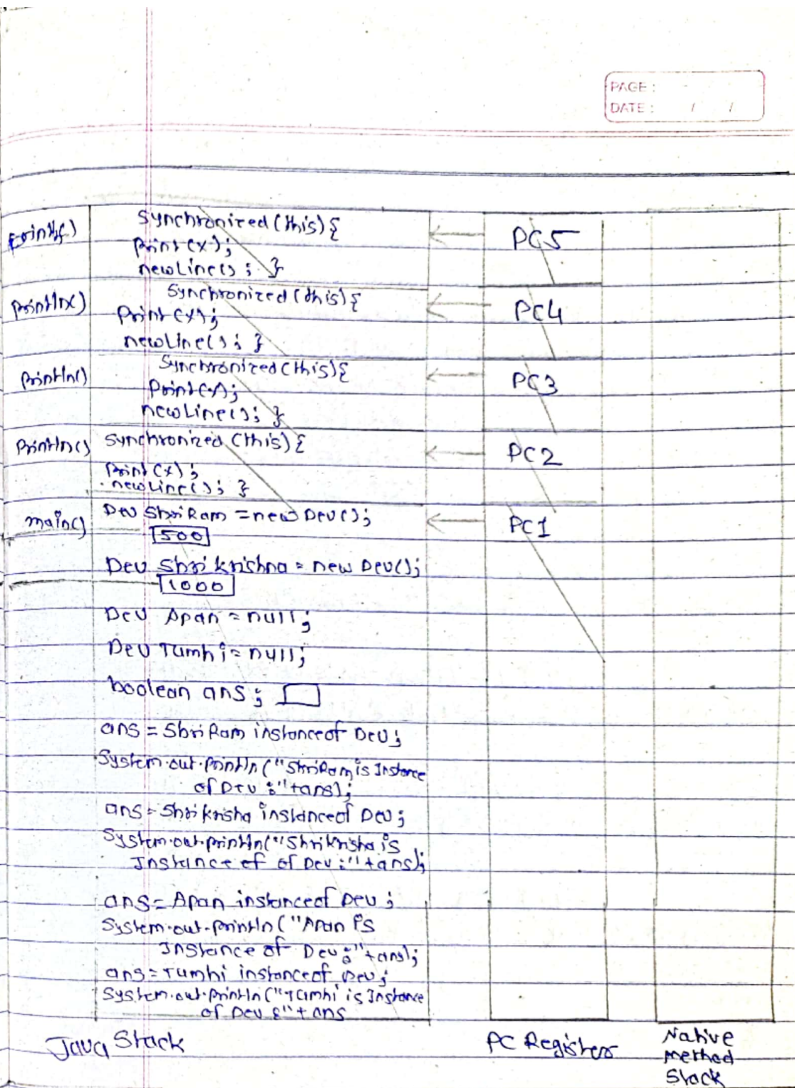 PAGE :
DATE : / /
Synchronized (this) {
PC5
print(x);
newLine(); }
Println() Synchronized (this) {
PC4
Print(x);
newLine(); }
Println() Synchronized (this) {
PC3
Print(x);
newLine(); }
Println() Synchronized (this) {
PC2
print(x);
newLine(); }
main() Dev ShriRam = new Dev();
PC1
500
Dev Shrikrishna = new Dev();
1000
Dev Apan = null;
Dev Tumhi = null;
boolean ans;
ans = ShriRam instanceof Dev;
System.out.println("ShriRam is Instance
of Dev :"+ans);
ans = Shrikrisha instanceof Dev;
System.out.println("Shrikrisha is
Instance of of Dev :"+ans);
ans = Apan instanceof Dev;
System.out.println("Apan is
Instance of Dev :"+ans);
ans = Tumhi instanceof Dev;
System.out.println("Tumhi is Instance
of Dev :"+ans
Java Stack
PC Registers
Native
method
Stack